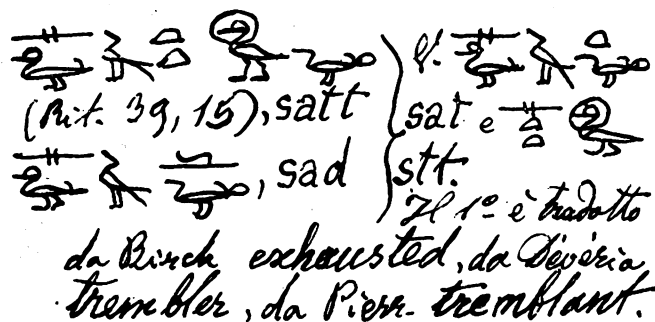 (Rit. 39, 15), satt
, sad
V.
sat e
stt.
Il 1º è tradotto
da Birch exhausted, da Dévéria
trembler, da Pierr. tremblant.